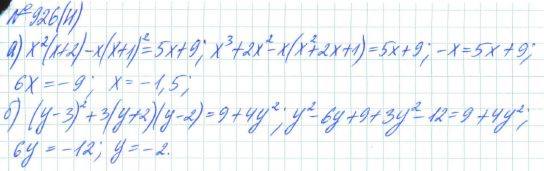 №926(н)
а) x²(x+2)-x(x+1)²=5x+9; x³+2x²-x(x²+2x+1)=5x+9; -x=5x+9;
6x=-9; x=-1,5;
б) (y-3)²+3(y+2)(y-2)=9+4y²; y²-6y+9+3y²-12=9+4y²;
6y=-12; y=-2.